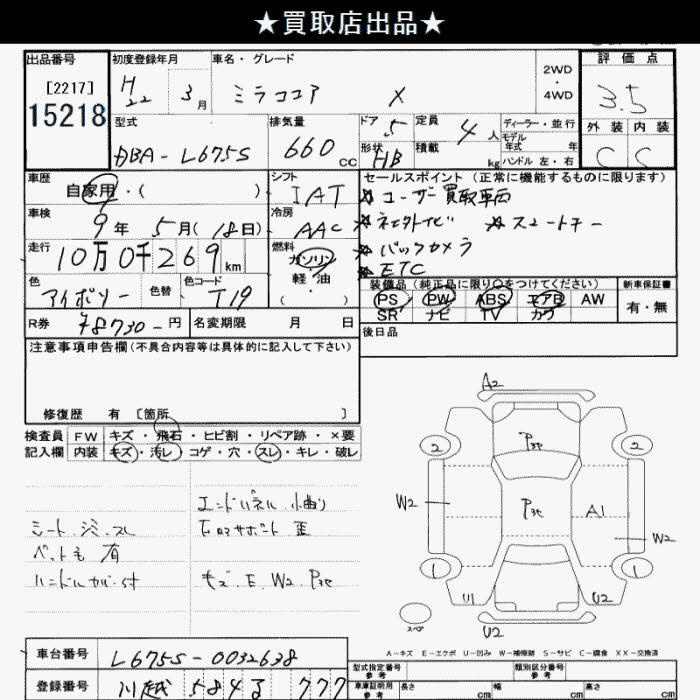 ★買取店出品★
出品番号 初度登録年月 車名・グレード 2WD・4WD 評価点
[2217] H22 3月 ミラココア X 3.5
15218
型式 排気量 ドア 定員 ディーラー・並行 外装 内装
DBA-L675S 660cc 5 4人 モデル年式 年 C C
形状 積載 kg ハンドル 左・右
HB
車歴 シフト セールスポイント (正常に機能するものに限ります)
自家用・( ) IAT ★ユーザー買取車両
車検 冷房 ★スマートキー
9年 5月(18日) AAC
走行 燃料 ★バックカメラ
10万0千269km ガソリン 軽油 ・( )
★ETC
色 色替 色コード 装備品 (純正品に限り○をつけてください) 新車保証書
アイボリー T19 PS PW ABS エアB AW 有・無
SR ナビ TV カワ
R券 ¥8730-円 名変期限 月 日 後日品
注意事項申告欄(不具合内容等は具体的に記入して下さい)
修復歴 有 [箇所 ]
検査員 FW キズ・飛石・ヒビ割・リペア跡・×要
記入欄 内装 キズ・汚レ・コゲ・穴・スレ・キレ・破レ
エンドパネル 小曲り
シート シミ スレ
ペット毛 有
ハンドルカバー付 キズ.E.W2.P3e
A2
2 P3e 2
W2 P3e A1
W2
1 1
U1 U2
スペア U2
A-キズ E-エクボ U-凹み W-補修跡 S-サビ C-腐食 XX-交換済
車台番号 L675S-0032638
型式指定番号 参考 類別区分番号 参考
登録番号 川越 584 る 777
車庫証明用 参考 長さ cm 幅 cm 高さ cm